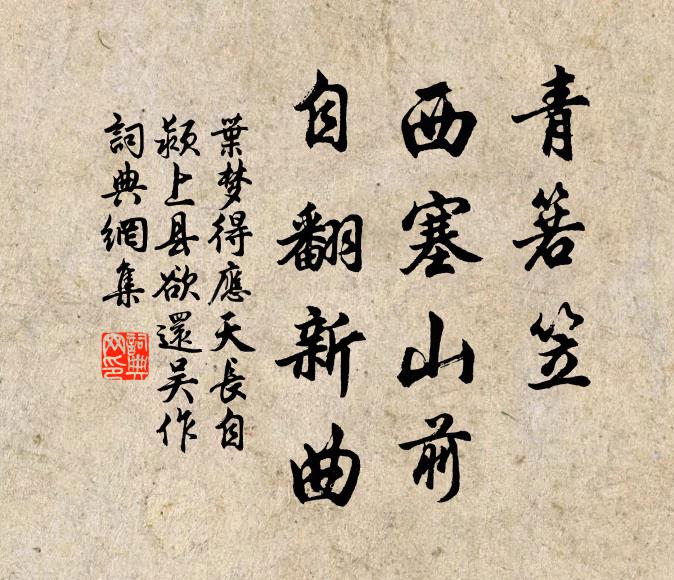 青箬笠
西塞山前
自翻新曲
葉梦得應天長自
潁上县欲還吴作
詞典網集
詞典
网印